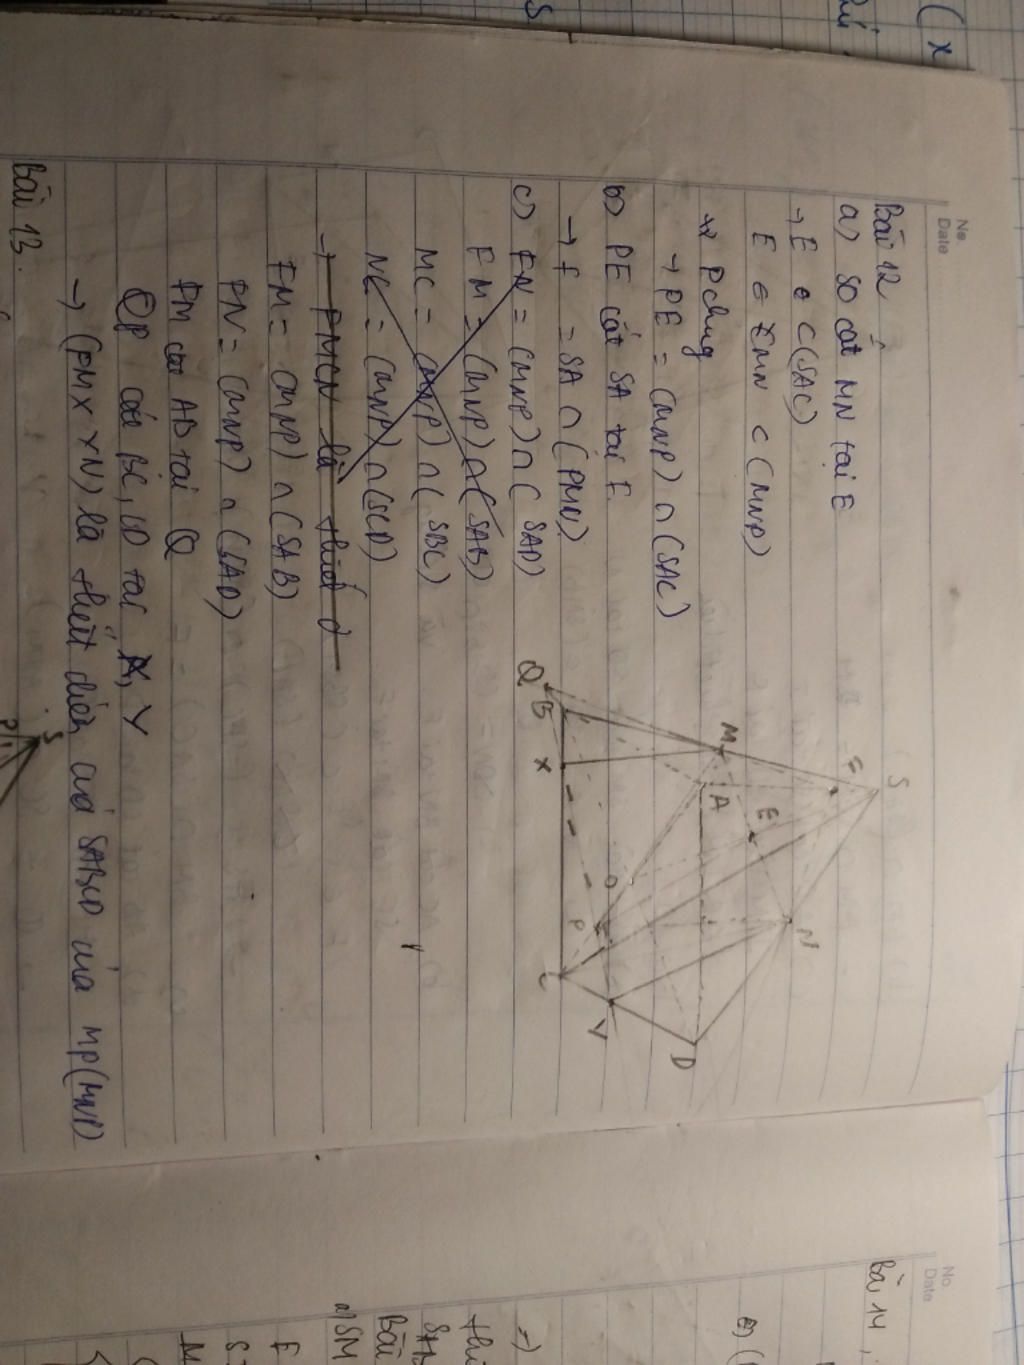 No.
Date
Bài 12
a) SO cắt MN tại E
→ E ∈ (SAC)
E ∈ MN ⊂ (MNP)
P chung
→ PE = (MNP) ∩ (SAC)
b) PE cắt SA tại F
→ F = SA ∩ (PMN)
c) FN = (MNP) ∩ (SAD)
FM = (MNP) ∩ (SAB)
MC = (MNP) ∩ (SBC)
NC = (MNP) ∩ (SCD)
→ FMCN là thiết d
FM = (MNP) ∩ (SAB)
FN = (MNP) ∩ (SAD)
FM cắt AB tại Q
QP cắt BC, CD tại X, Y
→ (FMXYN) là thiết diện của SABCD của mp(MNP)
Bài 13.
S
F
N
M
E
A
D
Q
B
X
O
P
C
Y
S
P
No.
Date
Bài 14